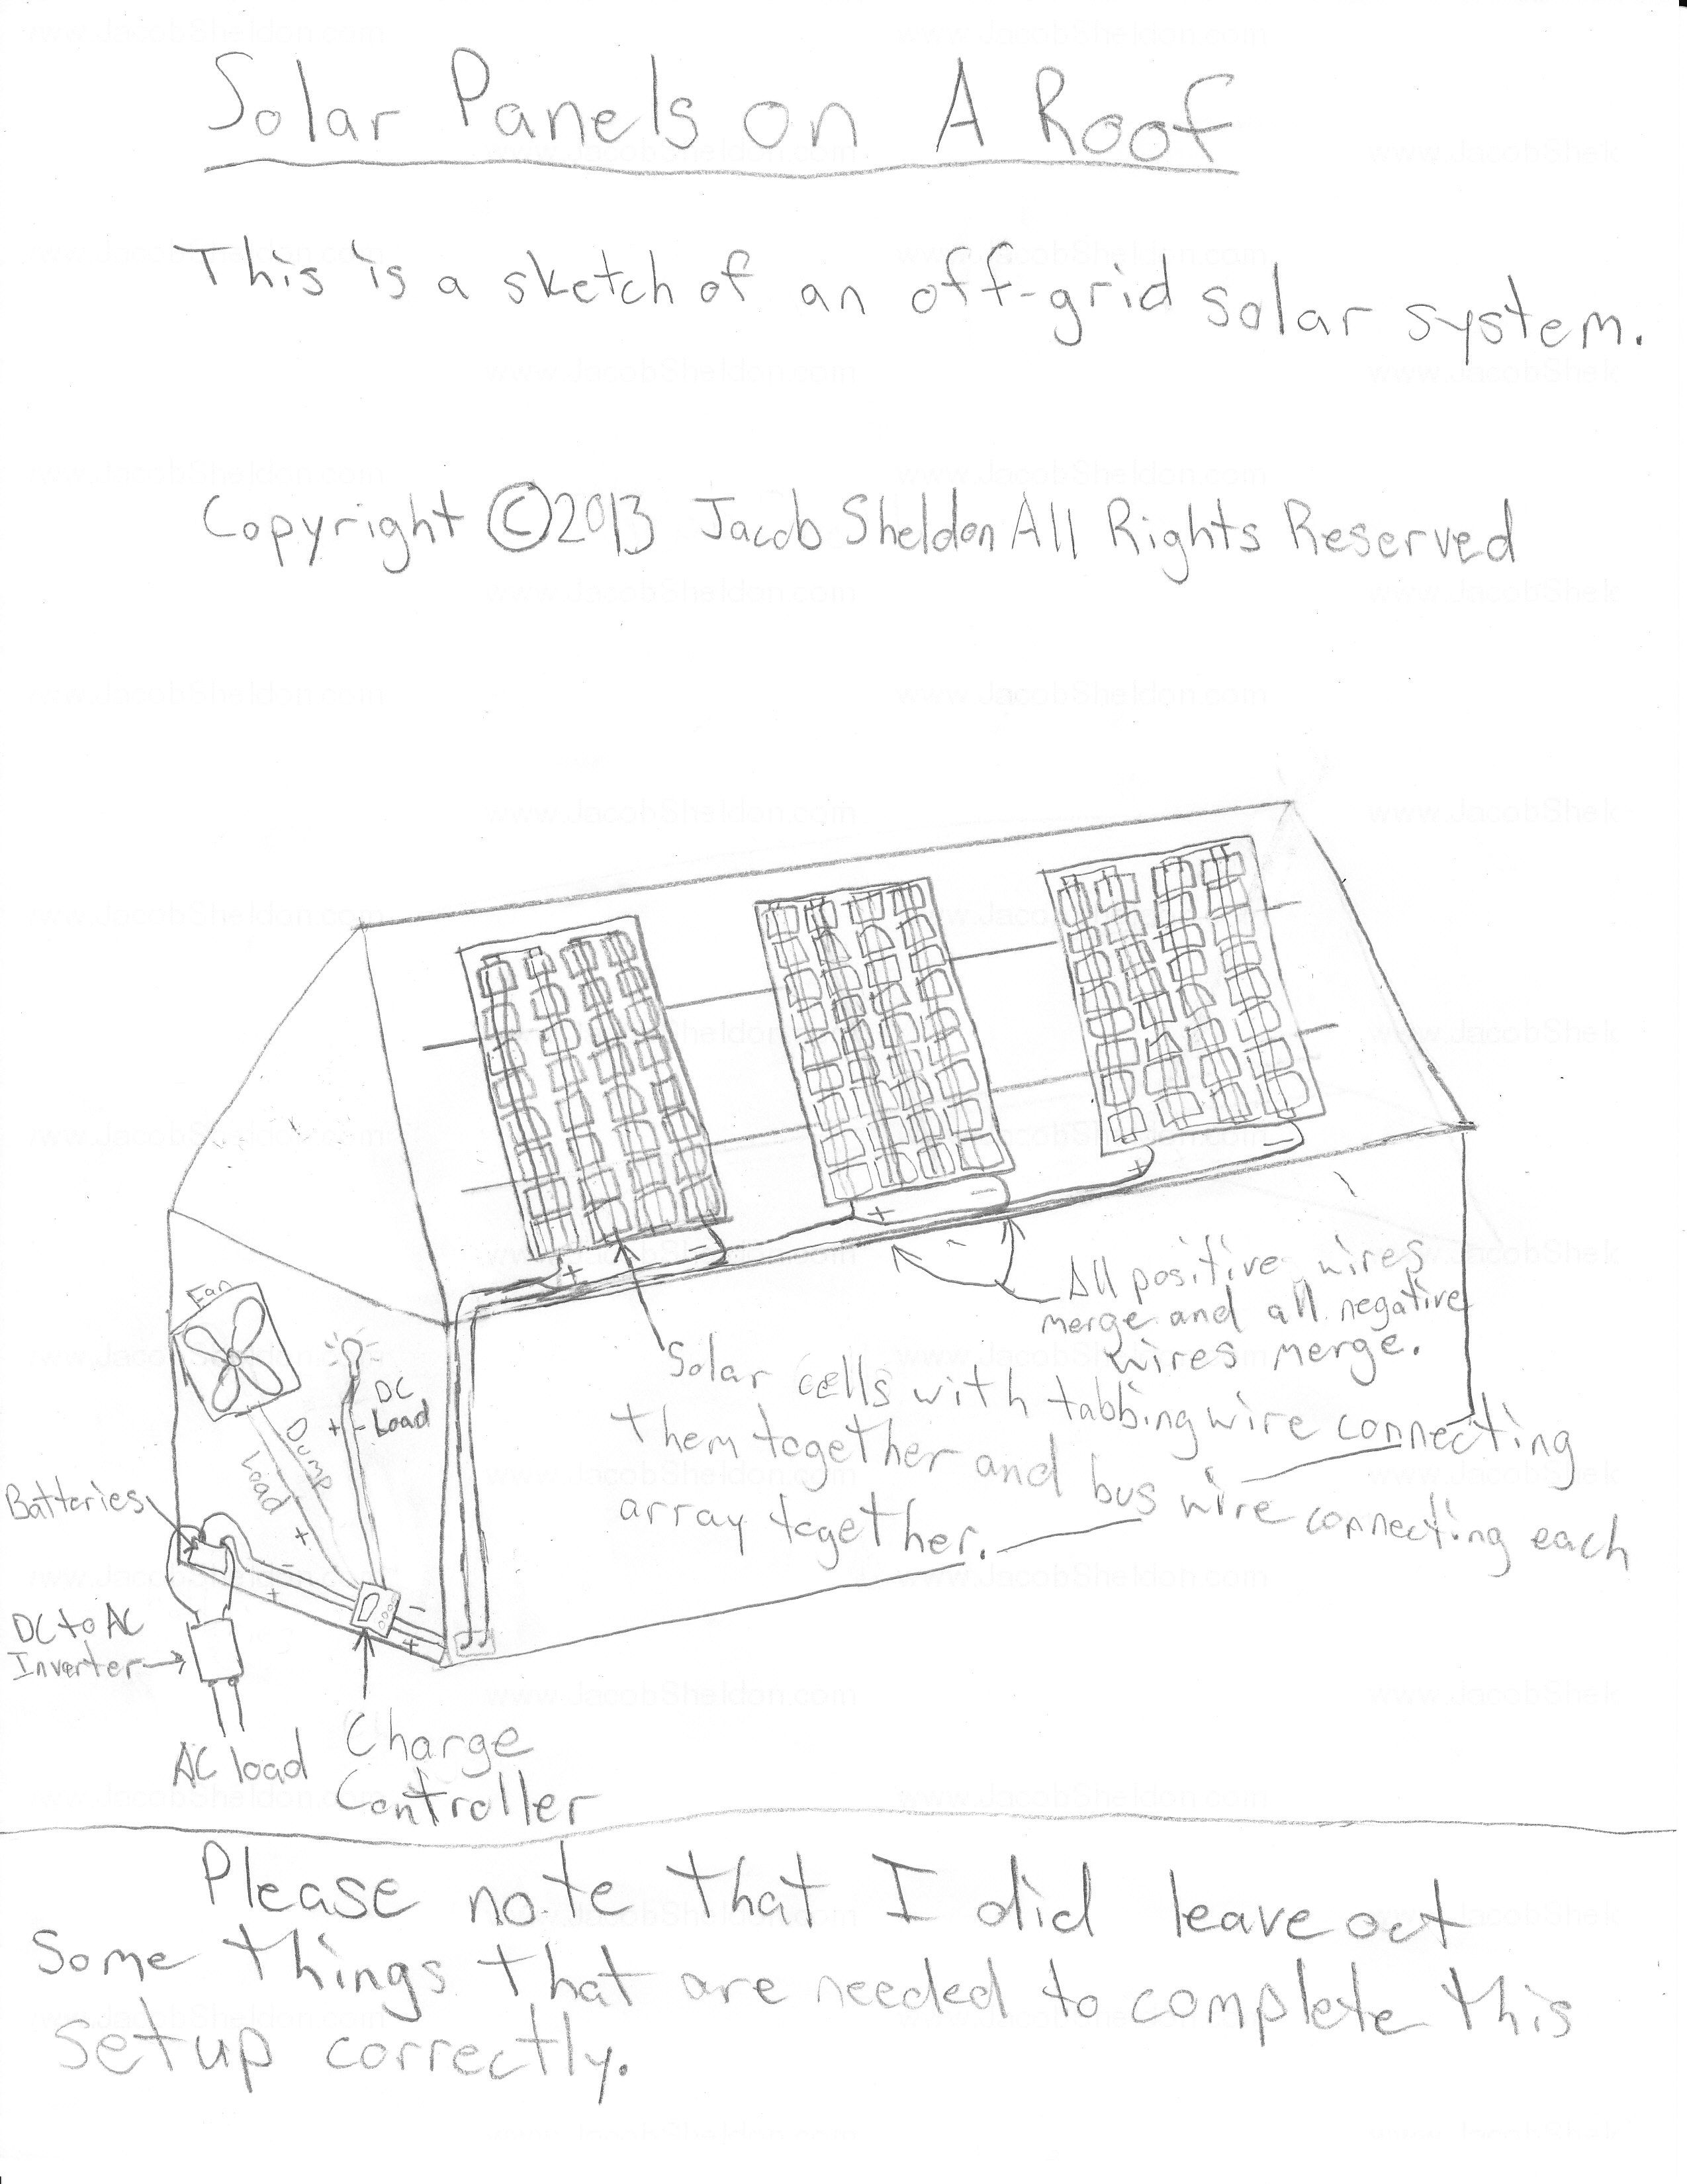 Solar Panels on A Roof
This is a sketch of an off-grid solar system.
Copyright ©2013 Jacob Sheldon All Rights Reserved
All positive wires
merge and all negative
wires merge.
Solar cells with tabbing wire connecting
them together and bus wire connecting each
array together.
Fan
DC
Load
Dump
Load
Batteries
DC to AC
Inverter
AC load
Charge
Controller
+
-
+
-
+
-
-
+ -
+
-
+
-
+
Please note that I did leave out
Some things that are needed to complete this
setup correctly.
www.JacobSheldon.com